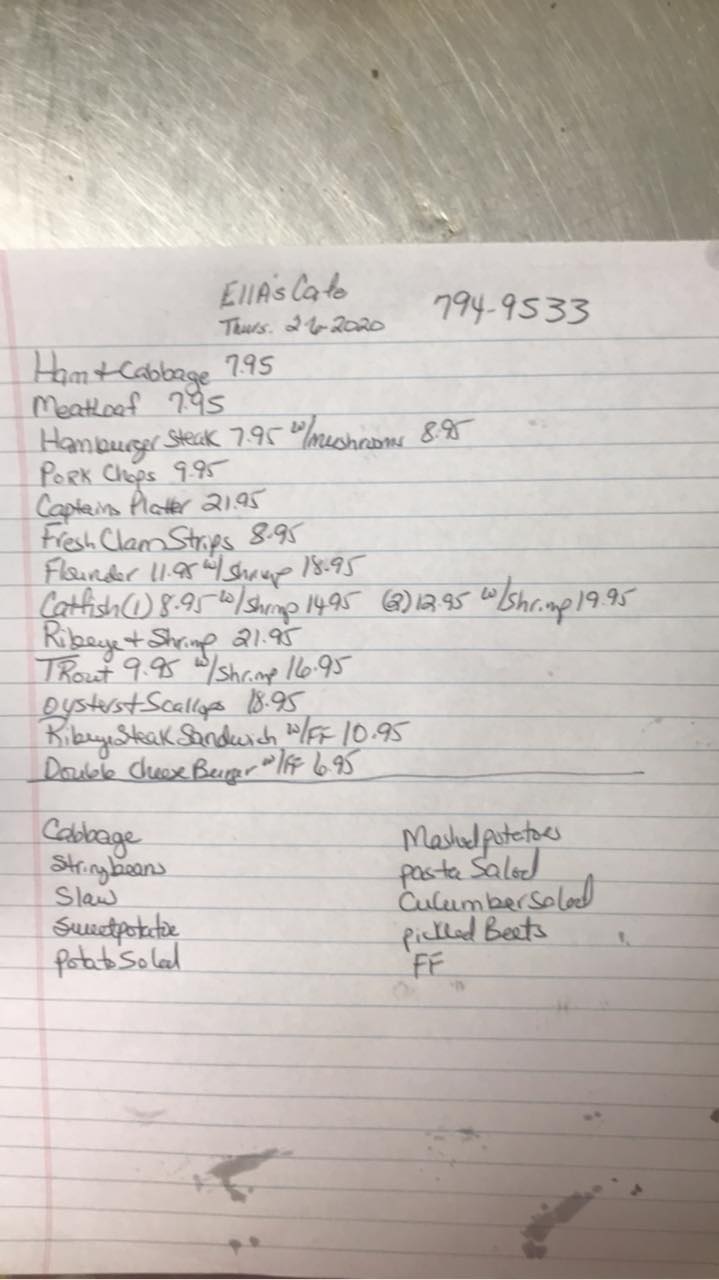 Ella's Cafe 794-9533
Thurs. 2-6-2020
Ham + Cabbage 7.95
Meatloaf 7.95
Hamburger Steak 7.95 w/mushrooms 8.95
Pork Chops 9.95
Captains Platter 21.95
Fresh Clam Strips 8.95
Flounder 11.95 w/shrimp 18.95
Catfish (1) 8.95 w/shrimp 14.95 (2) 12.95 w/shrimp 19.95
Ribeye + Shrimp 21.95
Trout 9.95 w/shrimp 16.95
Oysters + Scallops 18.95
Ribeye Steak Sandwich w/FF 10.95
Double Cheese Burger w/FF 6.95
Cabbage Mashed potatoes
Stringbeans pasta Salad
Slaw Cucumber Salad
Sweet potatoe pickled Beets
Potato Salad FF